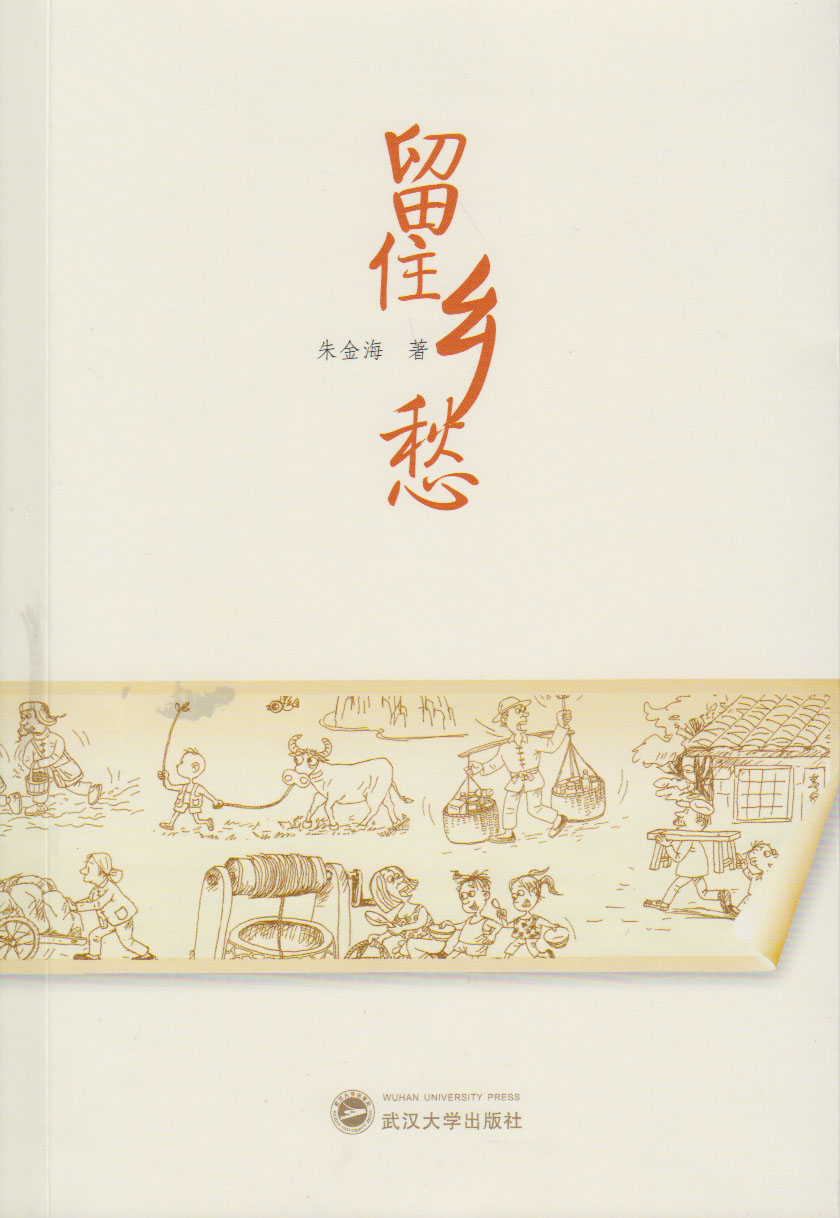 留住乡愁
朱金海 著
WUHAN UNIVERSITY PRESS
武汉大学出版社